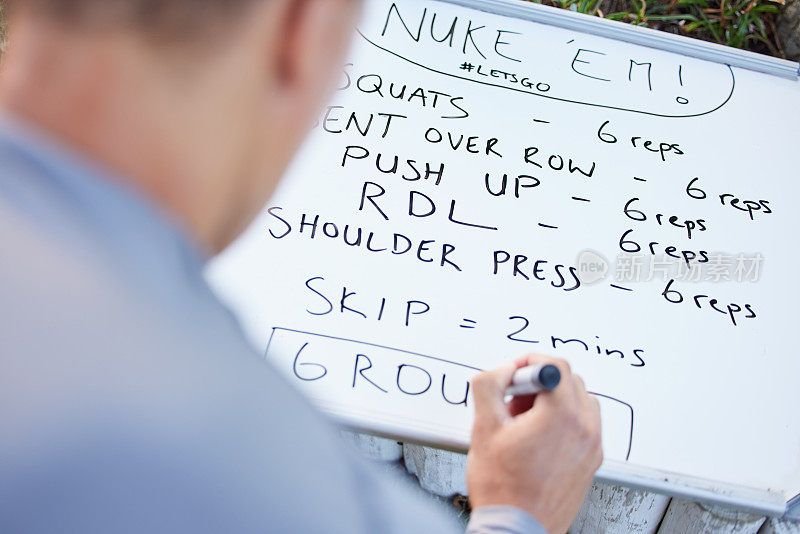 NUKE 'EM!
#LETSGO
SQUATS - 6 reps
BENT OVER ROW - 6 reps
PUSH UP - 6 reps
RDL - 6 reps
SHOULDER PRESS - 6 reps
SKIP = 2 mins
6 ROU
new 新浪图片素材